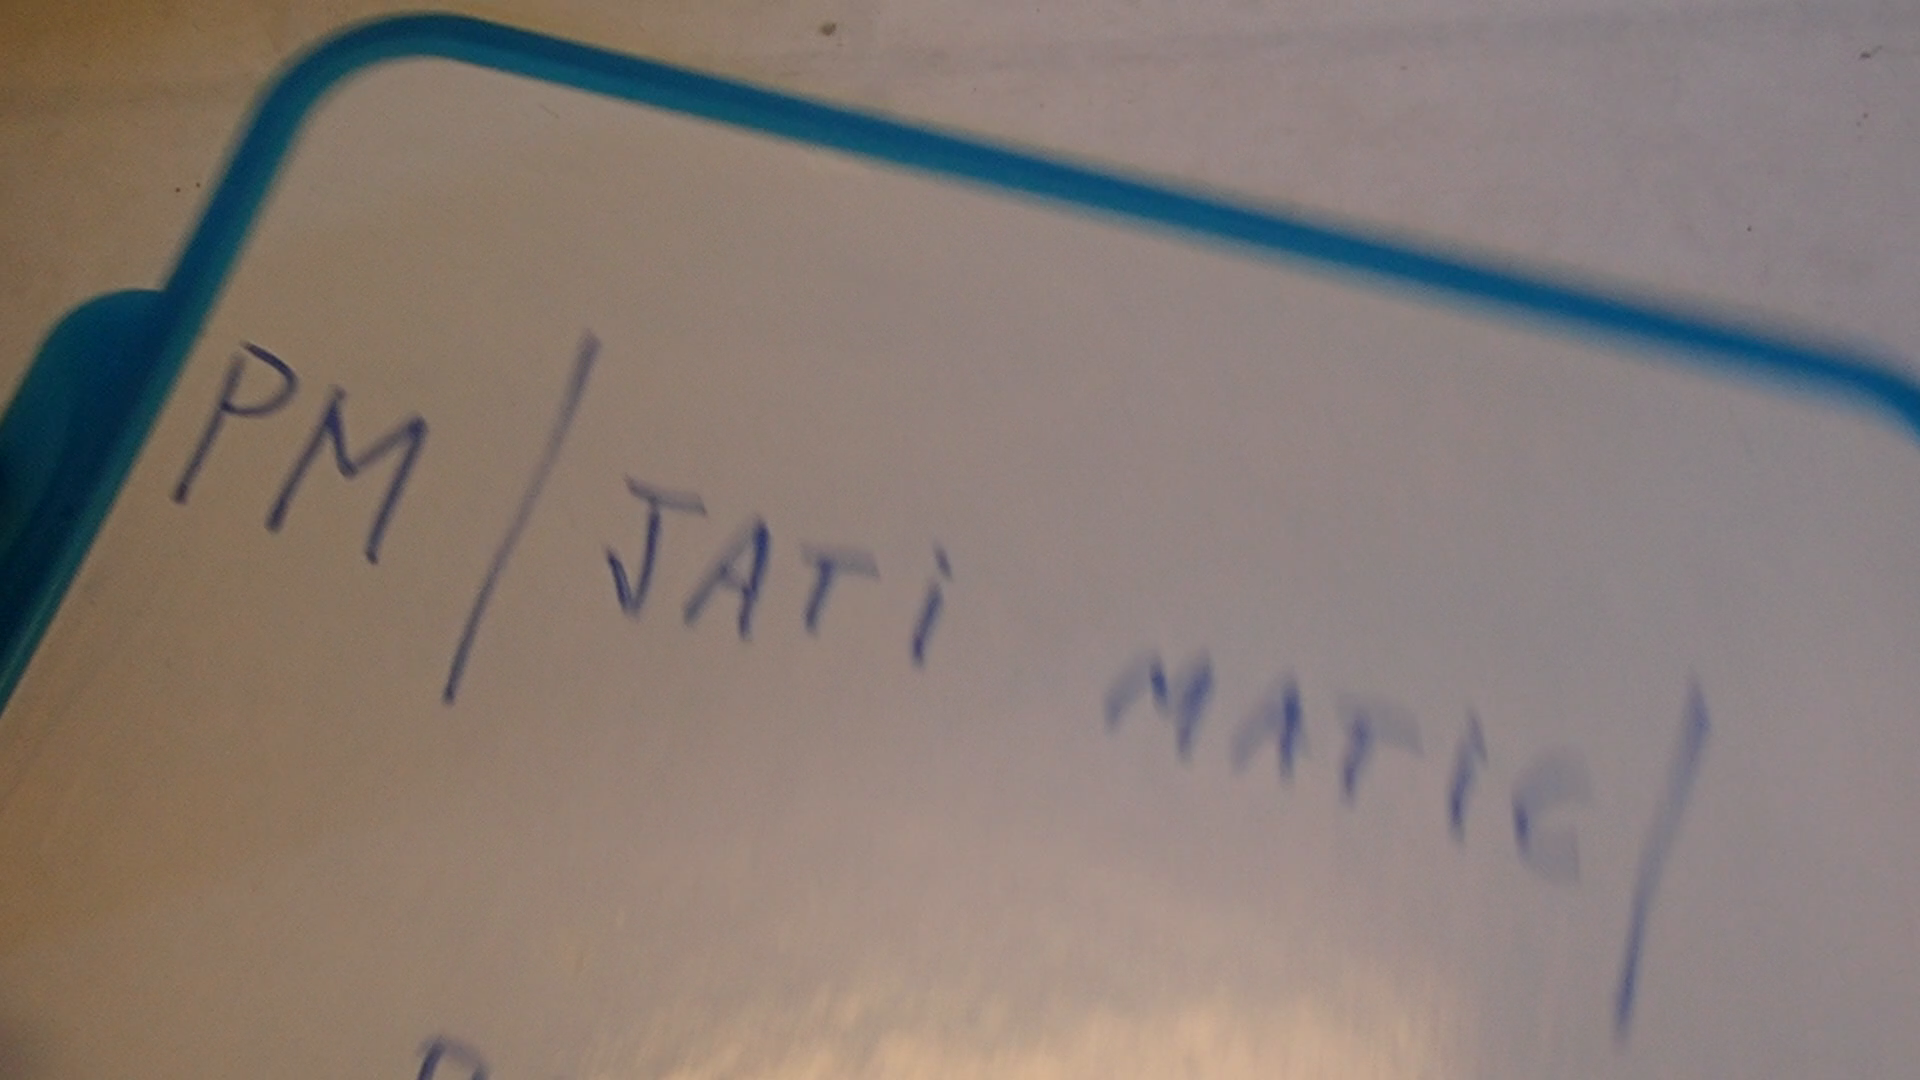 PM/JATi MATiC/